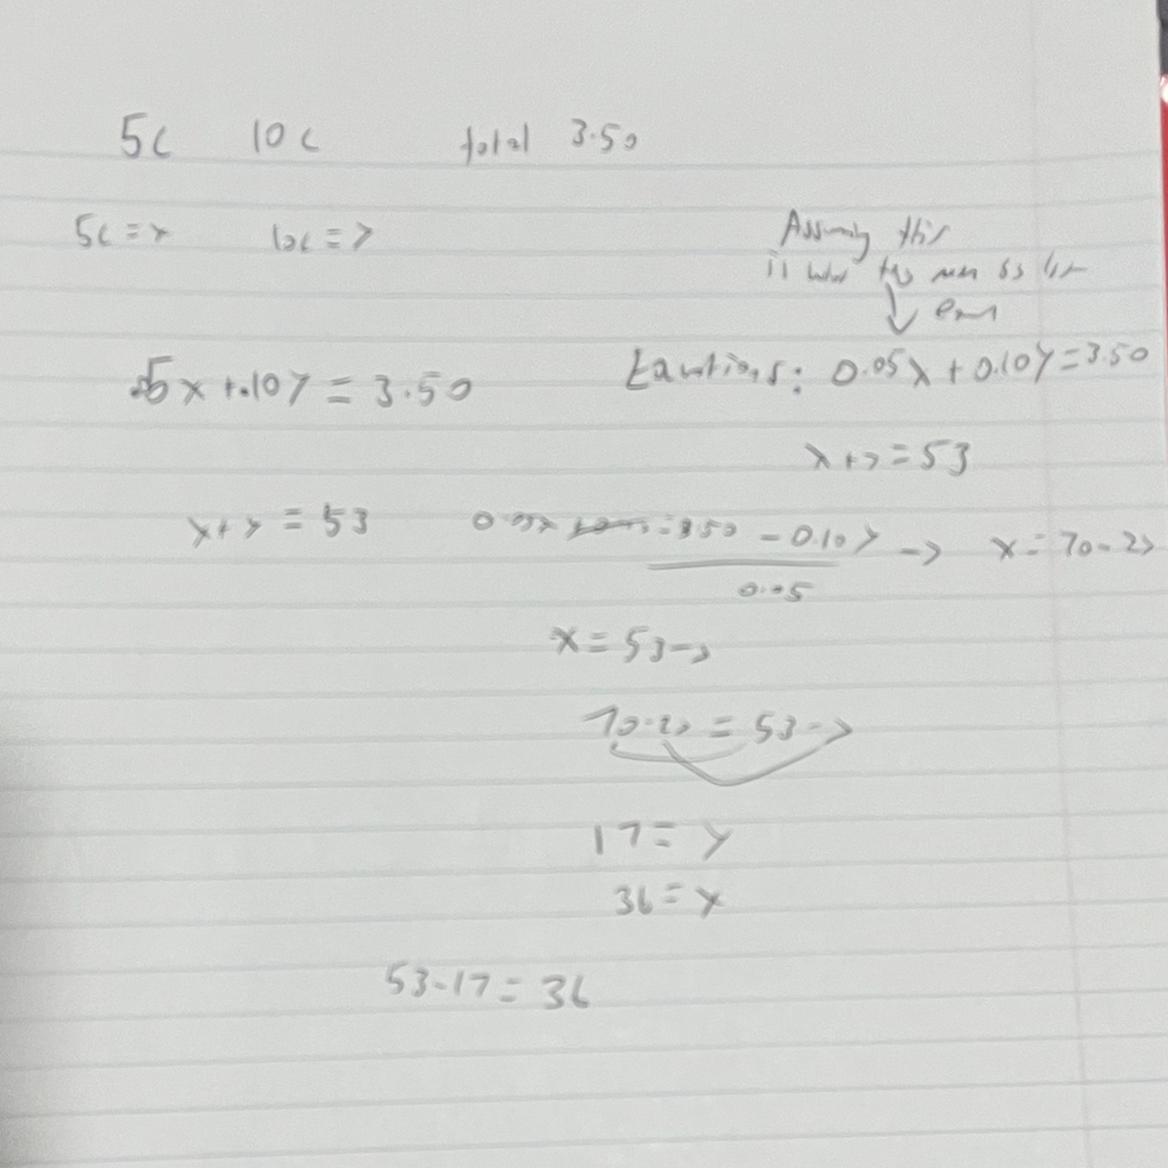 5c 10c total 3.50
5c = x 10c = y
Assuming this
is
.05x + .10y = 3.50
Equations: 0.05x + 0.10y = 3.50
x + y = 53
x + y = 53
0.05x = 3.50 - 0.10y -> x = 70 - 2y
0.05
x = 53 - y
70 - 2y = 53 - y
17 = y
36 = x
53 - 17 = 36